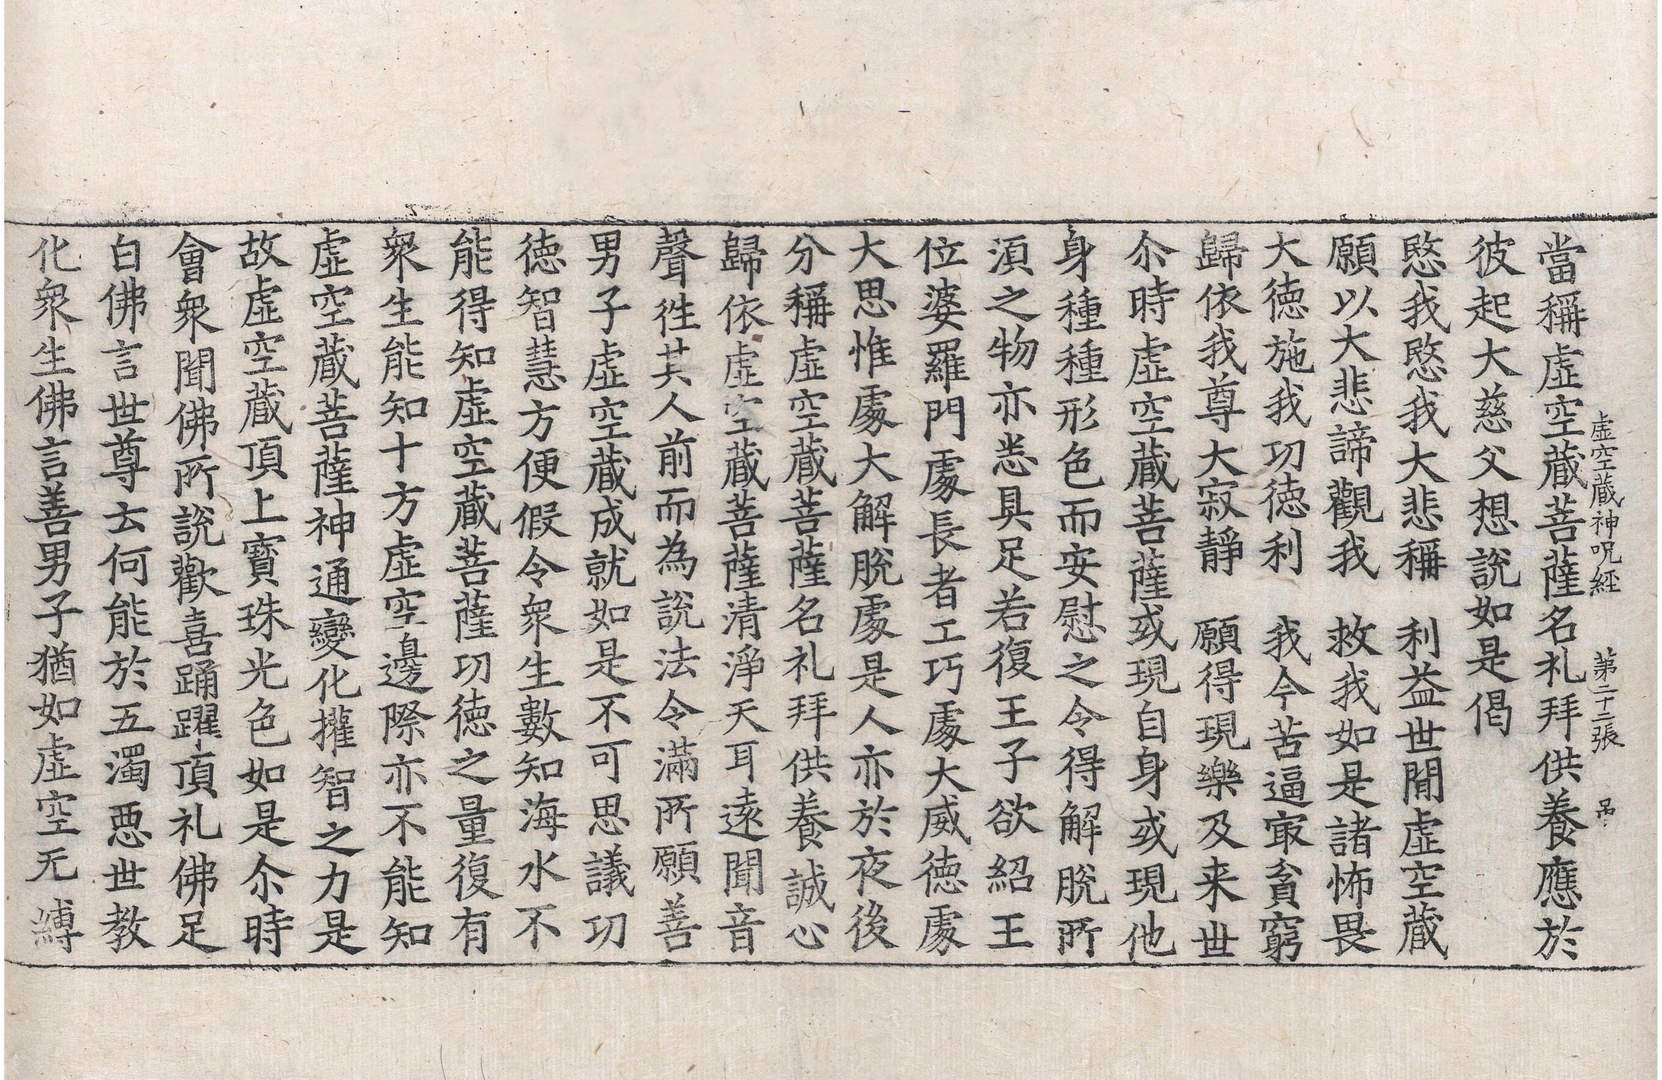 虛空藏神呪經　第二十二張　吊
當稱虛空蔵菩薩名礼拜供養應於
彼起大慈父想說如是偈
愍我愍我大悲稱　利益世閒虛空蔵
願以大悲諦觀我　救我如是諸怖畏
大徳施我功徳利　我今苦逼㝡貧窮
歸依我尊大寂靜　願得現樂及来世
尒時虛空蔵菩薩或現自身或現他
身種種形色而安慰之令得解脫所
湏之物亦悉具足若復王子欲紹王
位婆羅門處長者工巧處大威徳處
大思惟處大解脫處是人亦於夜後
分稱虛空蔵菩薩名礼拜供養誠心
歸依虛空蔵菩薩清淨天耳遠聞音
聲徃其人前而為說法令滿所願善
男子虛空蔵成就如是不可思議功
徳智慧方便假令衆生數知海水不
能得知虛空蔵菩薩功徳之量復有
衆生能知十方虛空邊際亦不能知
虛空蔵菩薩神通變化權智之力是
故虛空蔵頂上寶珠光色如是尒時
會衆聞佛所說歡喜踊躍頂礼佛足
白佛言世尊云何能於五濁惡世教
化衆生佛言善男子猶如虛空无縛